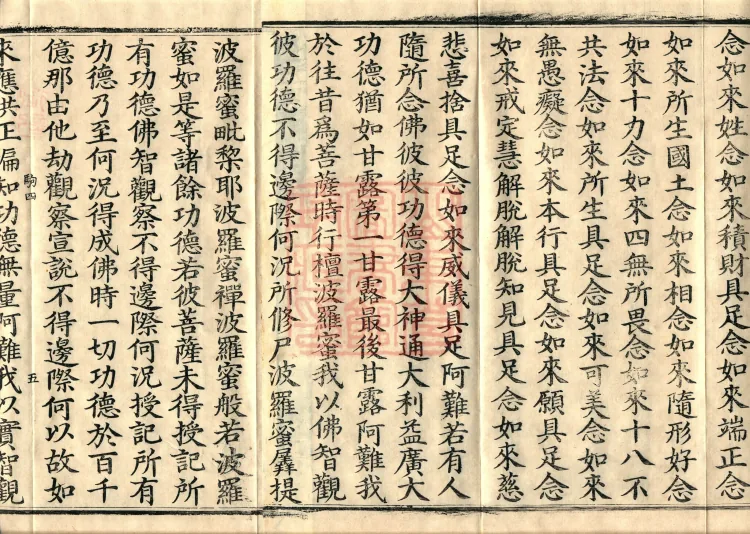 念如來姓念如來積財具足念如來端正念
如來所生國土念如來相念如來隨形好念
如來十力念如來四無所畏念如來十八不
共法念如來所生具足念如來可美念如來
無愚癡念如來本行具足念如來願具足念
如來戒定慧解脫解脫知見具足念如來慈
悲喜捨具足念如來威儀具足阿難若有人
隨所念佛彼彼功德得大神通大利益廣大
功德猶如甘露第一甘露最後甘露阿難我
於往昔爲菩薩時行檀波羅蜜我以佛智觀
彼功德不得邊際何況所修尸波羅蜜羼提
波羅蜜毗棃耶波羅蜜禪波羅蜜般若波羅
蜜如是等諸餘功德若彼菩薩未得授記所
有功德佛智觀察不得邊際何況授記所有
功德乃至何況得成佛時一切功德於百千
億那由他劫觀察宣說不得邊際何以故如
駒四 五
來應供正徧知功德無量阿難我以實智觀